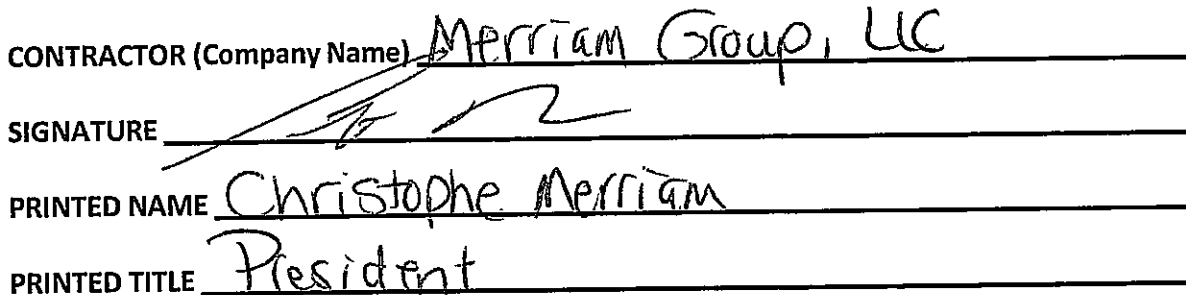 CONTRACTOR (Company Name) Merriam Group, LLC
SIGNATURE
PRINTED NAME Christophe Merriam
PRINTED TITLE President